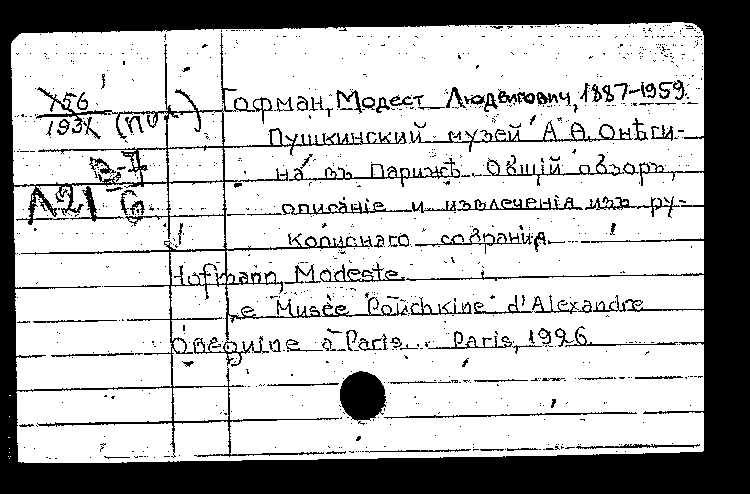 156
193X (пох)
В-7
Л21 6
Гофман, Модест Людвигович, 1887-1959.
Пушкинский музей А. Ѳ. Онѣги-
на въ Парижѣ. Общій обзоръ,
описаніе и извлеченія изъ ру-
кописнаго собранія.
Hofmann, Modeste.
Le Musée Pouchkine d'Alexandre
Oneguine à Paris... Paris, 1926.